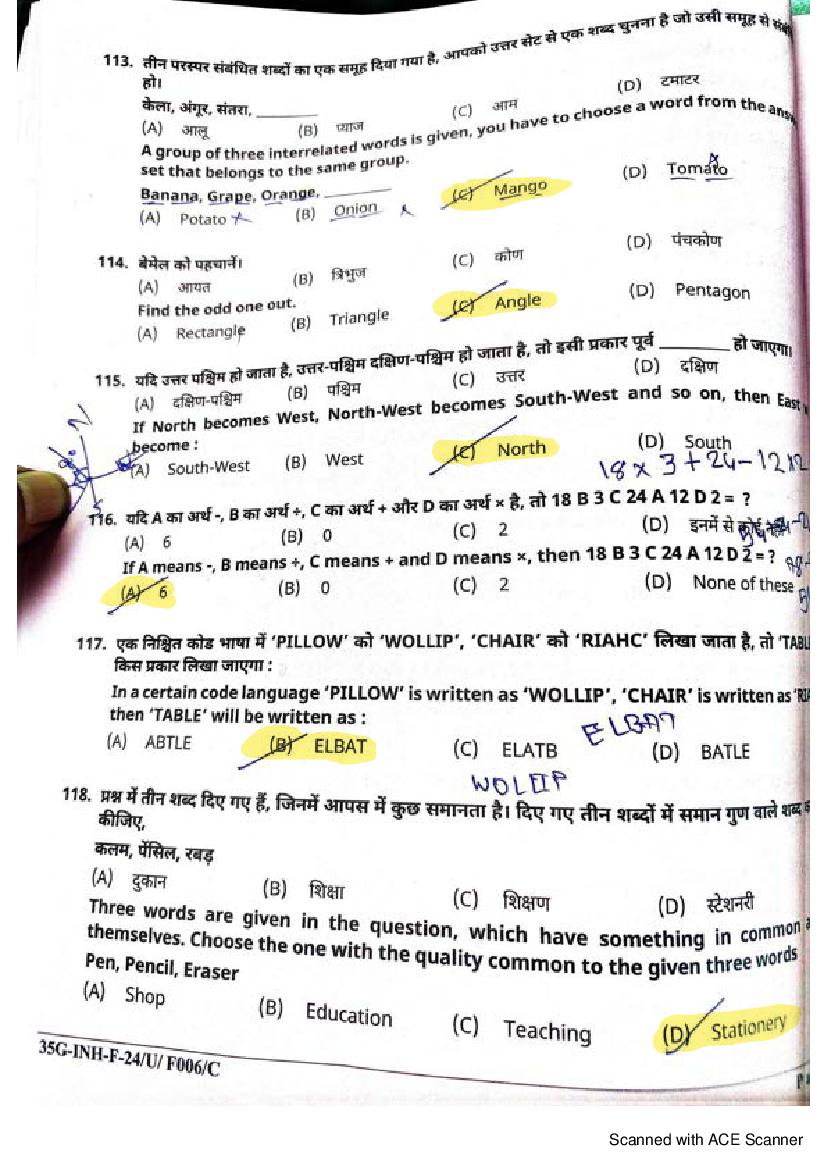 113. तीन परस्पर संबंधित शब्दों का एक समूह दिया गया है, आपको उत्तर सेट से एक शब्द चुनना है जो उसी समूह से
हो।
केला, अंगूर, संतरा, ________
(A) आलू (B) प्याज (C) आम (D) टमाटर
A group of three interrelated words is given, you have to choose a word from the
set that belongs to the same group.
Banana, Grape, Orange, ________
(A) Potato (B) Onion (C) Mango (D) Tomato
114. बेमेल को पहचानें।
(A) आयत (B) त्रिभुज (C) कोण (D) पंचकोण
Find the odd one out.
(A) Rectangle (B) Triangle (C) Angle (D) Pentagon
115. यदि उत्तर पश्चिम हो जाता है, उत्तर-पश्चिम दक्षिण-पश्चिम हो जाता है, तो इसी प्रकार पूर्व ________ हो जाएगा।
(A) दक्षिण-पश्चिम (B) पश्चिम (C) उत्तर (D) दक्षिण
If North becomes West, North-West becomes South-West and so on, then East
become :
(A) South-West (B) West (C) North (D) South
N
S
18 x 3 + 24 - 12 x 2
116. यदि A का अर्थ -, B का अर्थ ÷, C का अर्थ + और D का अर्थ × है, तो 18 B 3 C 24 A 12 D 2 = ?
(A) 6 (B) 0 (C) 2 (D) इनमें से
If A means -, B means ÷, C means + and D means ×, then 18 B 3 C 24 A 12 D 2 = ?
(A) 6 (B) 0 (C) 2 (D) None of these
117. एक निश्चित कोड भाषा में ‘PILLOW’ को ‘WOLLIP’, ‘CHAIR’ को ‘RIAHC’ लिखा जाता है, तो
किस प्रकार लिखा जाएगा :
In a certain code language ‘PILLOW’ is written as ‘WOLLIP’, ‘CHAIR’ is written as
then ‘TABLE’ will be written as :
ELBAT
(A) ABTLE (B) ELBAT (C) ELATB (D) BATLE
WOLLIP
118. प्रश्न में तीन शब्द दिए गए हैं, जिनमें आपस में कुछ समानता है। दिए गए तीन शब्दों में समान गुण वाले शब्द
कीजिए,
कलम, पेंसिल, रबड़
(A) दुकान (B) शिक्षा (C) शिक्षण (D) स्टेशनरी
Three words are given in the question, which have something in common
themselves. Choose the one with the quality common to the given three words
Pen, Pencil, Eraser
(A) Shop (B) Education (C) Teaching (D) Stationery
35G-INH-F-24/U/ F006/C
Scanned with ACE Scanner